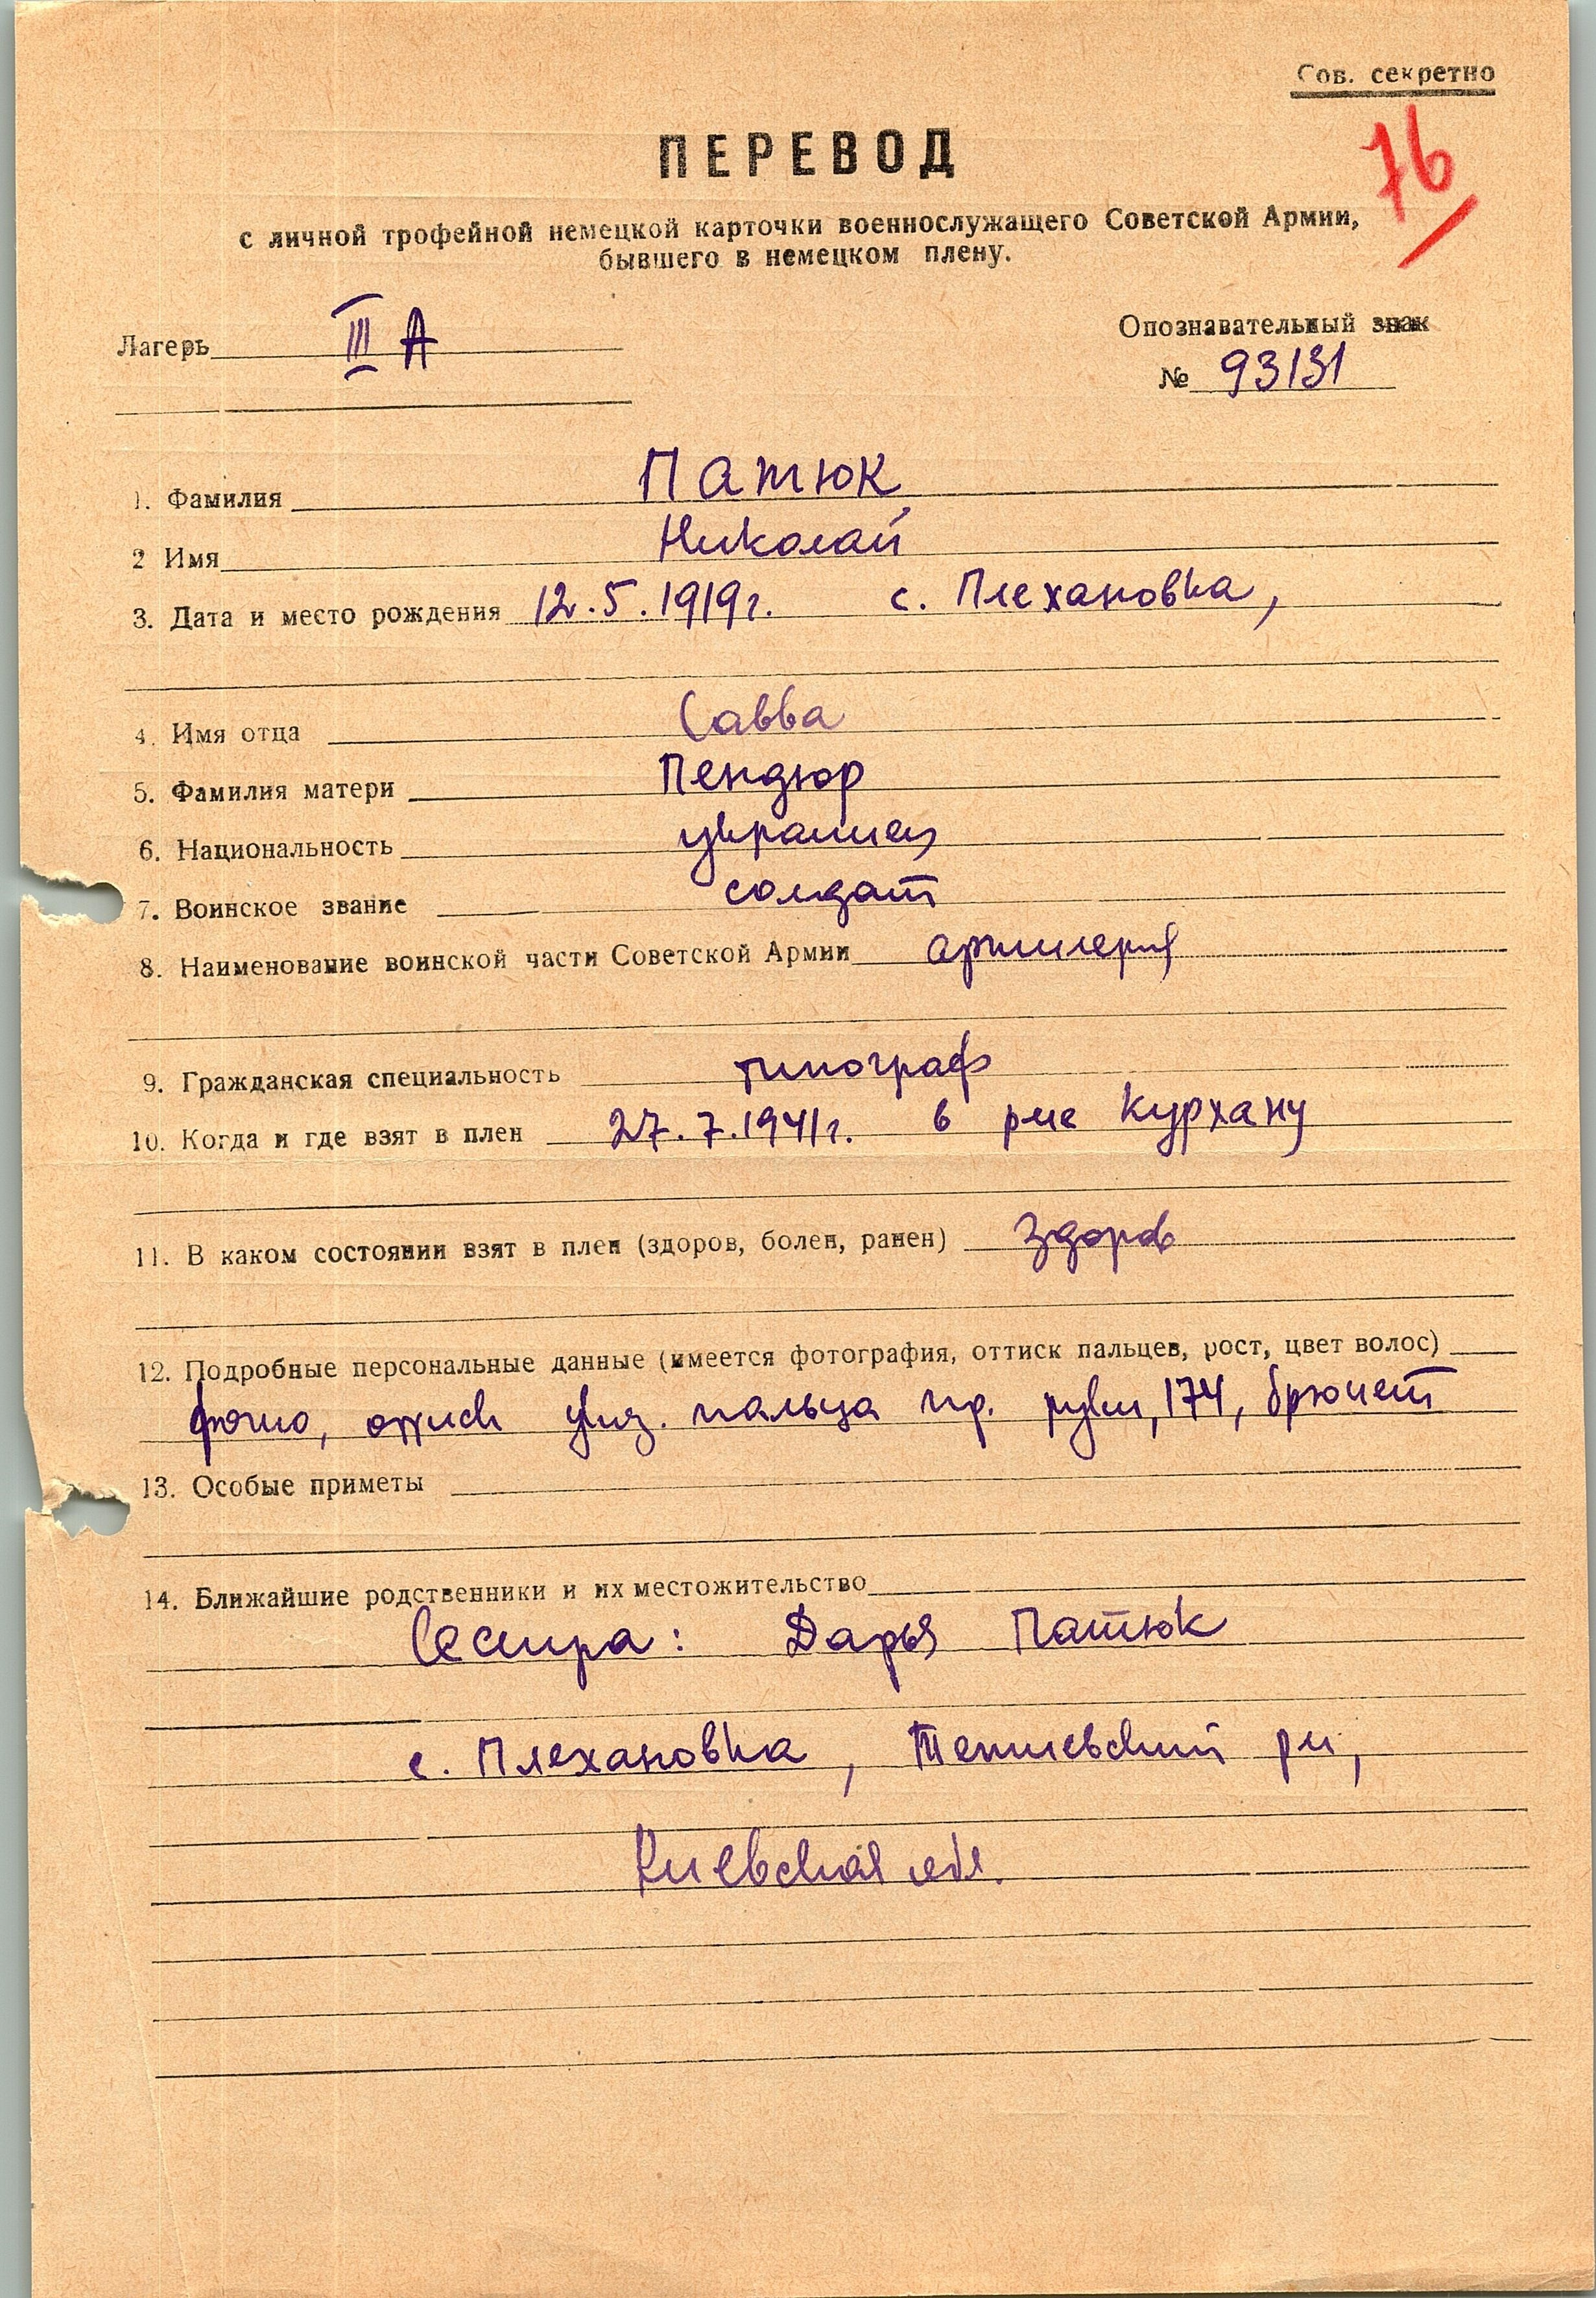 Сов. секретно
76
ПЕРЕВОД
с личной трофейной немецкой карточки военнослужащего Советской Армии,
бывшего в немецком плену.
Лагерь III А
Опознавательный знак
№ 93131
1. Фамилия Патюк
2 Имя Николай
3. Дата и место рождения 12.5.1919г. с. Плехановка,
4. Имя отца Савва
5. Фамилия матери Пендюр
6. Национальность украинец
7. Воинское звание солдат
8. Наименование воинской части Советской Армии артилерия
9. Гражданская специальность типограф
10. Когда и где взят в плен 27.7.1941г. в р-не Курхану
11. В каком состоянии взят в плен (здоров, болен, ранен) здоров
12. Подробные персональные данные (имеется фотография, оттиск пальцев, рост, цвет волос)
фото, оттиск указ. пальца пр. руки, 174, брюнет
13. Особые приметы
14. Ближайшие родственники и их местожительство
Сестра: Дарья Патюк
с. Плехановка, р-н,
Киевская обл.